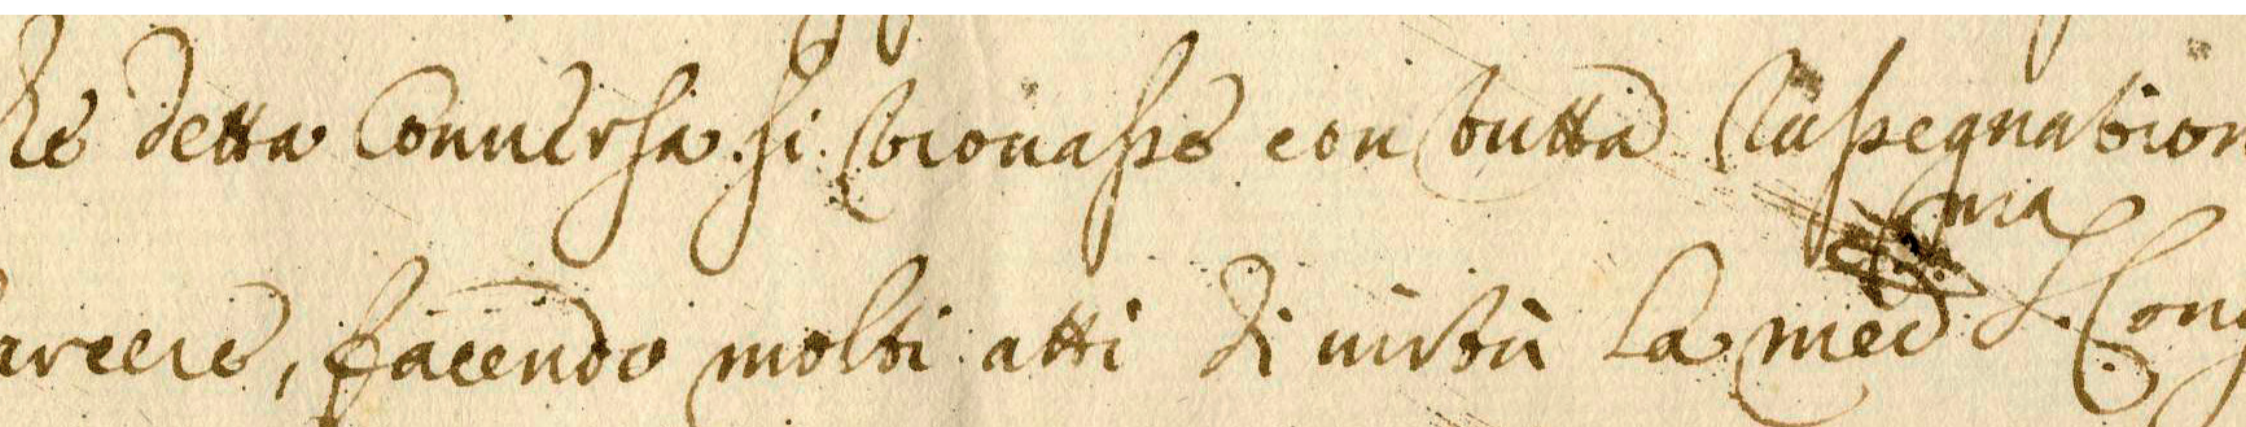 he detta Conuersa si trouasse con tutta rassegnation
arcere, facendo molti atti di uirtù la med.ma S. Cong